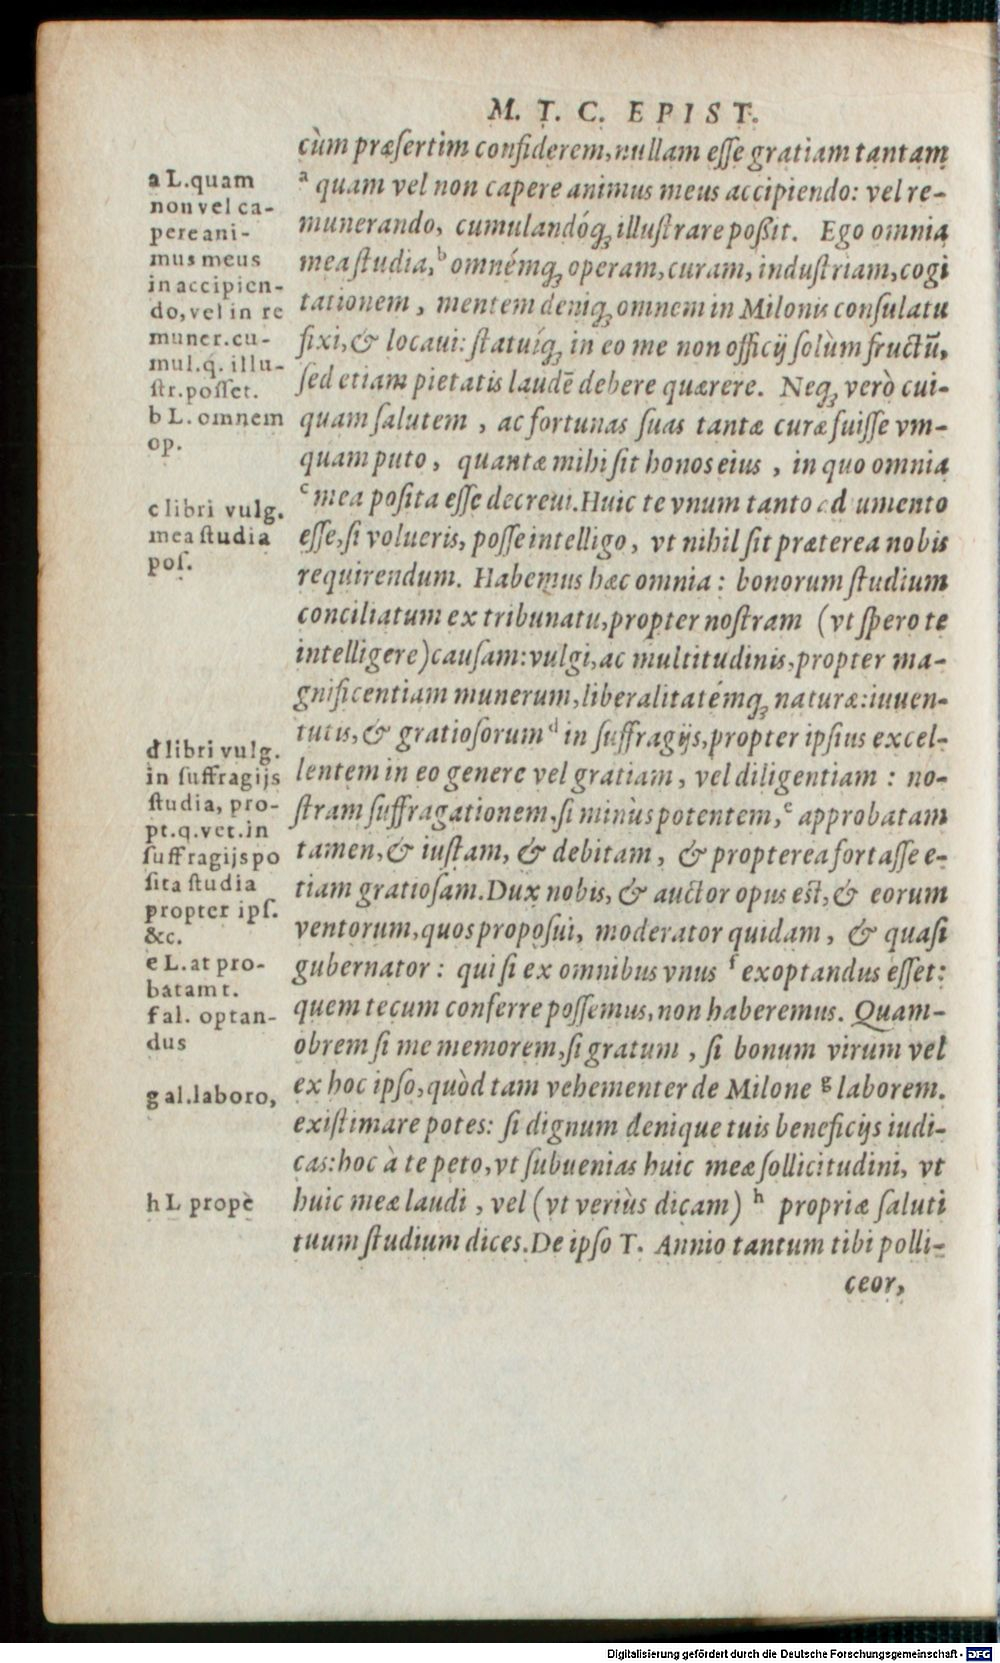 M. T. C. EPIST.
cùm præſertim confiderem, nullam eſſe gratiam tantam
a quam vel non capere animus meus accipiendo: vel re-
munerando, cumulandóq́; illuſtrare poßit. Ego omnia
mea ſtudia, b omnémq́; operam, curam, induſtriam, cogi
tationem, mentem deniq; omnem in Milonis conſulatu
fixi, & locaui: ſtatuíq́; in eo me non officij ſolùm fructū,
ſed etiam pietatis laudē debere quærere. Neq; verò cui-
quam ſalutem, ac fortunas ſuas tantæ curæ fuiſſe vm-
quam puto, quantæ mihi ſit honos eius, in quo omnia
c mea poſita eſſe decreui. Huic te vnum tanto ad umento
eſſe, ſi volueris, poſſe intelligo, vt nihil ſit præterea nobis
requirendum. Habemus hæc omnia: bonorum ſtudium
conciliatum ex tribunatu, propter noſtram (vt ſpero te
intelligere) cauſam: vulgi, ac multitudinis, propter ma-
gnificentiam munerum, liberalitatémq́; naturæ: iuuen-
tutis, & gratioſorum d in ſuffragijs, propter ipſius excel-
lentem in eo genere vel gratiam, vel diligentiam: no-
ſtram ſuffragationem, ſi minùs potentem, e approbatam
tamen, & iuſtam, & debitam, & propterea fortaſſe e-
tiam gratioſam. Dux nobis, & auctor opus eſt, & eorum
ventorum, quos propoſui, moderator quidam, & quaſi
gubernator: qui ſi ex omnibus vnus f exoptandus eſſet:
quem tecum conferre poſſemus, non haberemus. Quam-
obrem ſi me memorem, ſi gratum, ſi bonum virum vel
ex hoc ipſo, quòd tam vehementer de Milone g laborem.
exiſtimare potes: ſi dignum denique tuis beneficijs iudi-
cas: hoc à te peto, vt ſubuenias huic meæ ſollicitudini, vt
huic meæ laudi, vel (vt veriùs dicam) h propriæ ſaluti
tuum ſtudium dices. De ipſo T. Annio tantum tibi polli-
ceor,
a L. quam
non vel ca-
pere ani-
mus meus
in accipien-
do, vel in re
muner. cu-
mul. q́. illu-
ſtr. poſſet.
b L. omnem
op.
c libri vulg.
mea ſtudia
poſ.
d libri vulg.
in ſuffragijs
ſtudia, pro-
pt. q. vet. in
ſuffragijs po
ſita ſtudia
propter ipſ.
&c.
e L. at pro-
batam t.
f al. optan-
dus
g al. laboro,
h L propè
Digitalisierung gefördert durch die Deutsche Forschungsgemeinschaft - DFG